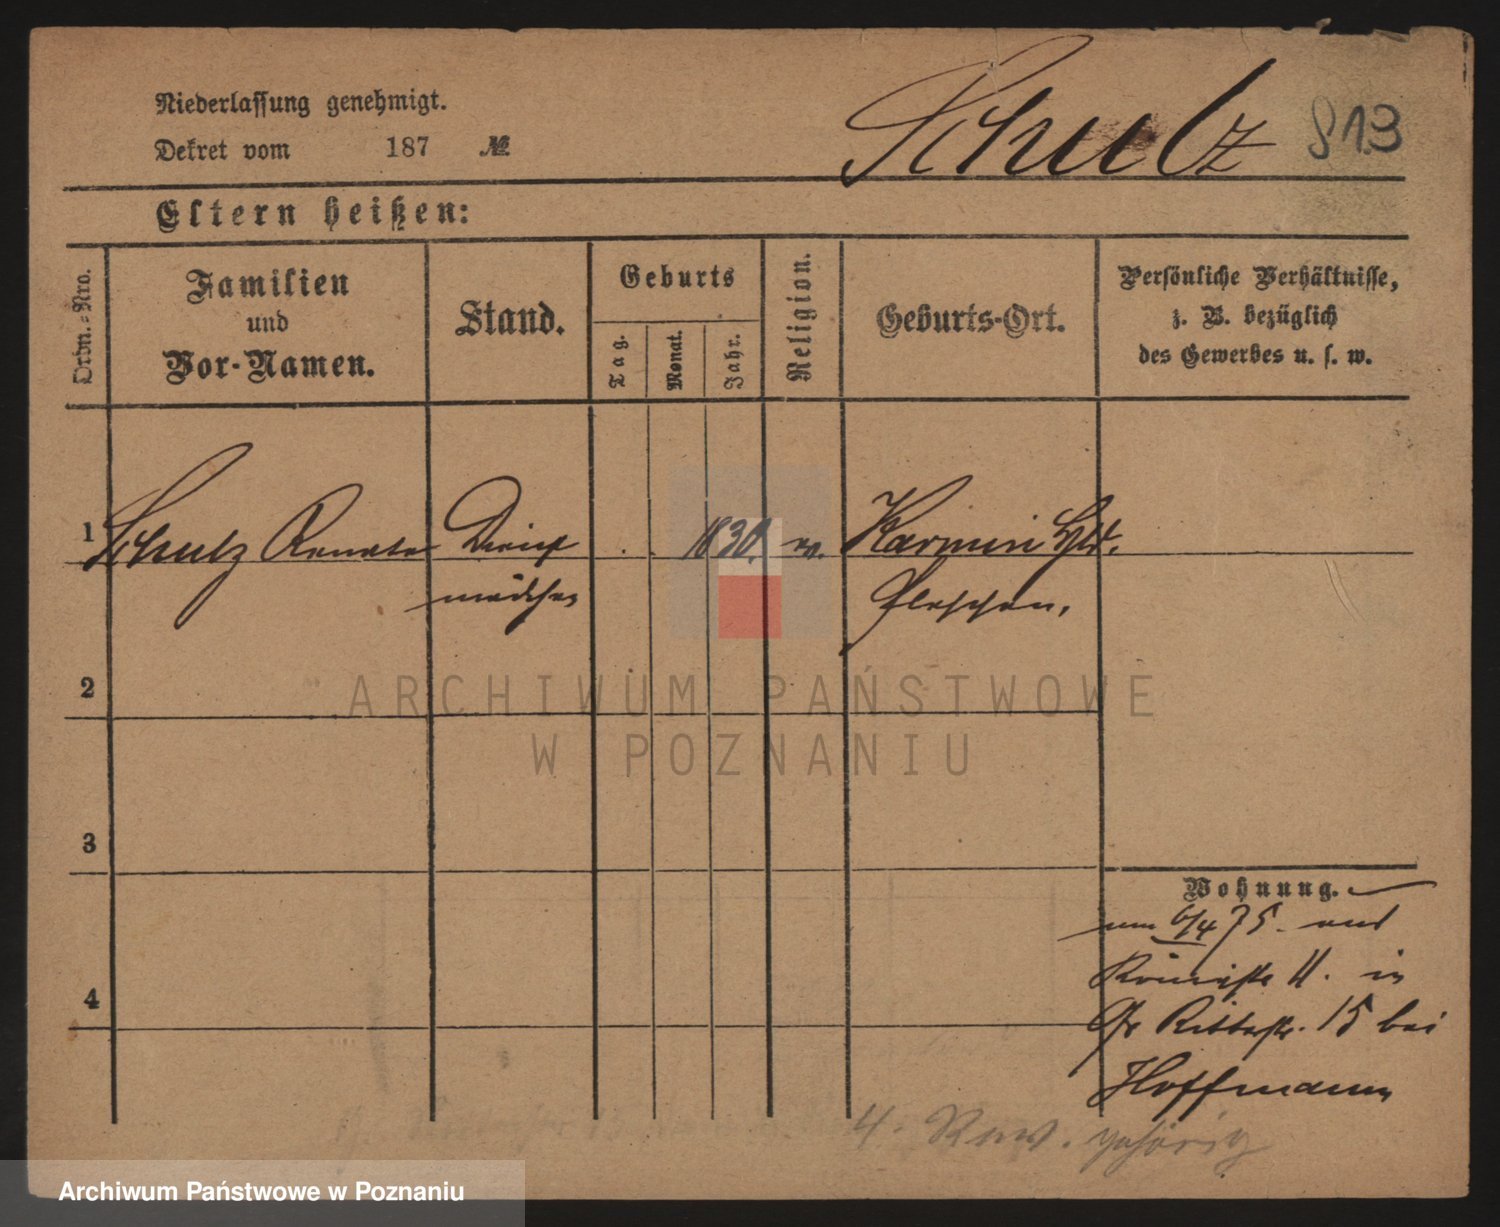 Niederlassung genehmigt.
Dekret vom 187 №
Schulz 813
Eltern heißen:
Ordn.-Nro.
Familien
und
Vor-Namen.
Stand.
Geburts
Tag.
Monat.
Jahr.
Religion.
Geburts-Ort.
Persönliche Verhältnisse,
z. B. bezüglich
des Gewerbes u. s. w.
1 Schulz Renate Dienst 1830.
mädchen Pleschen.
2
ARCHIWUM PAŃSTWOWE
W POZNANIU
3
Wohnung.
6/4 75.
11. in
Gr Ritterstr. 15 bei
4
Hoffmann
4. Rev. gehörig
Archiwum Państwowe w Poznaniu